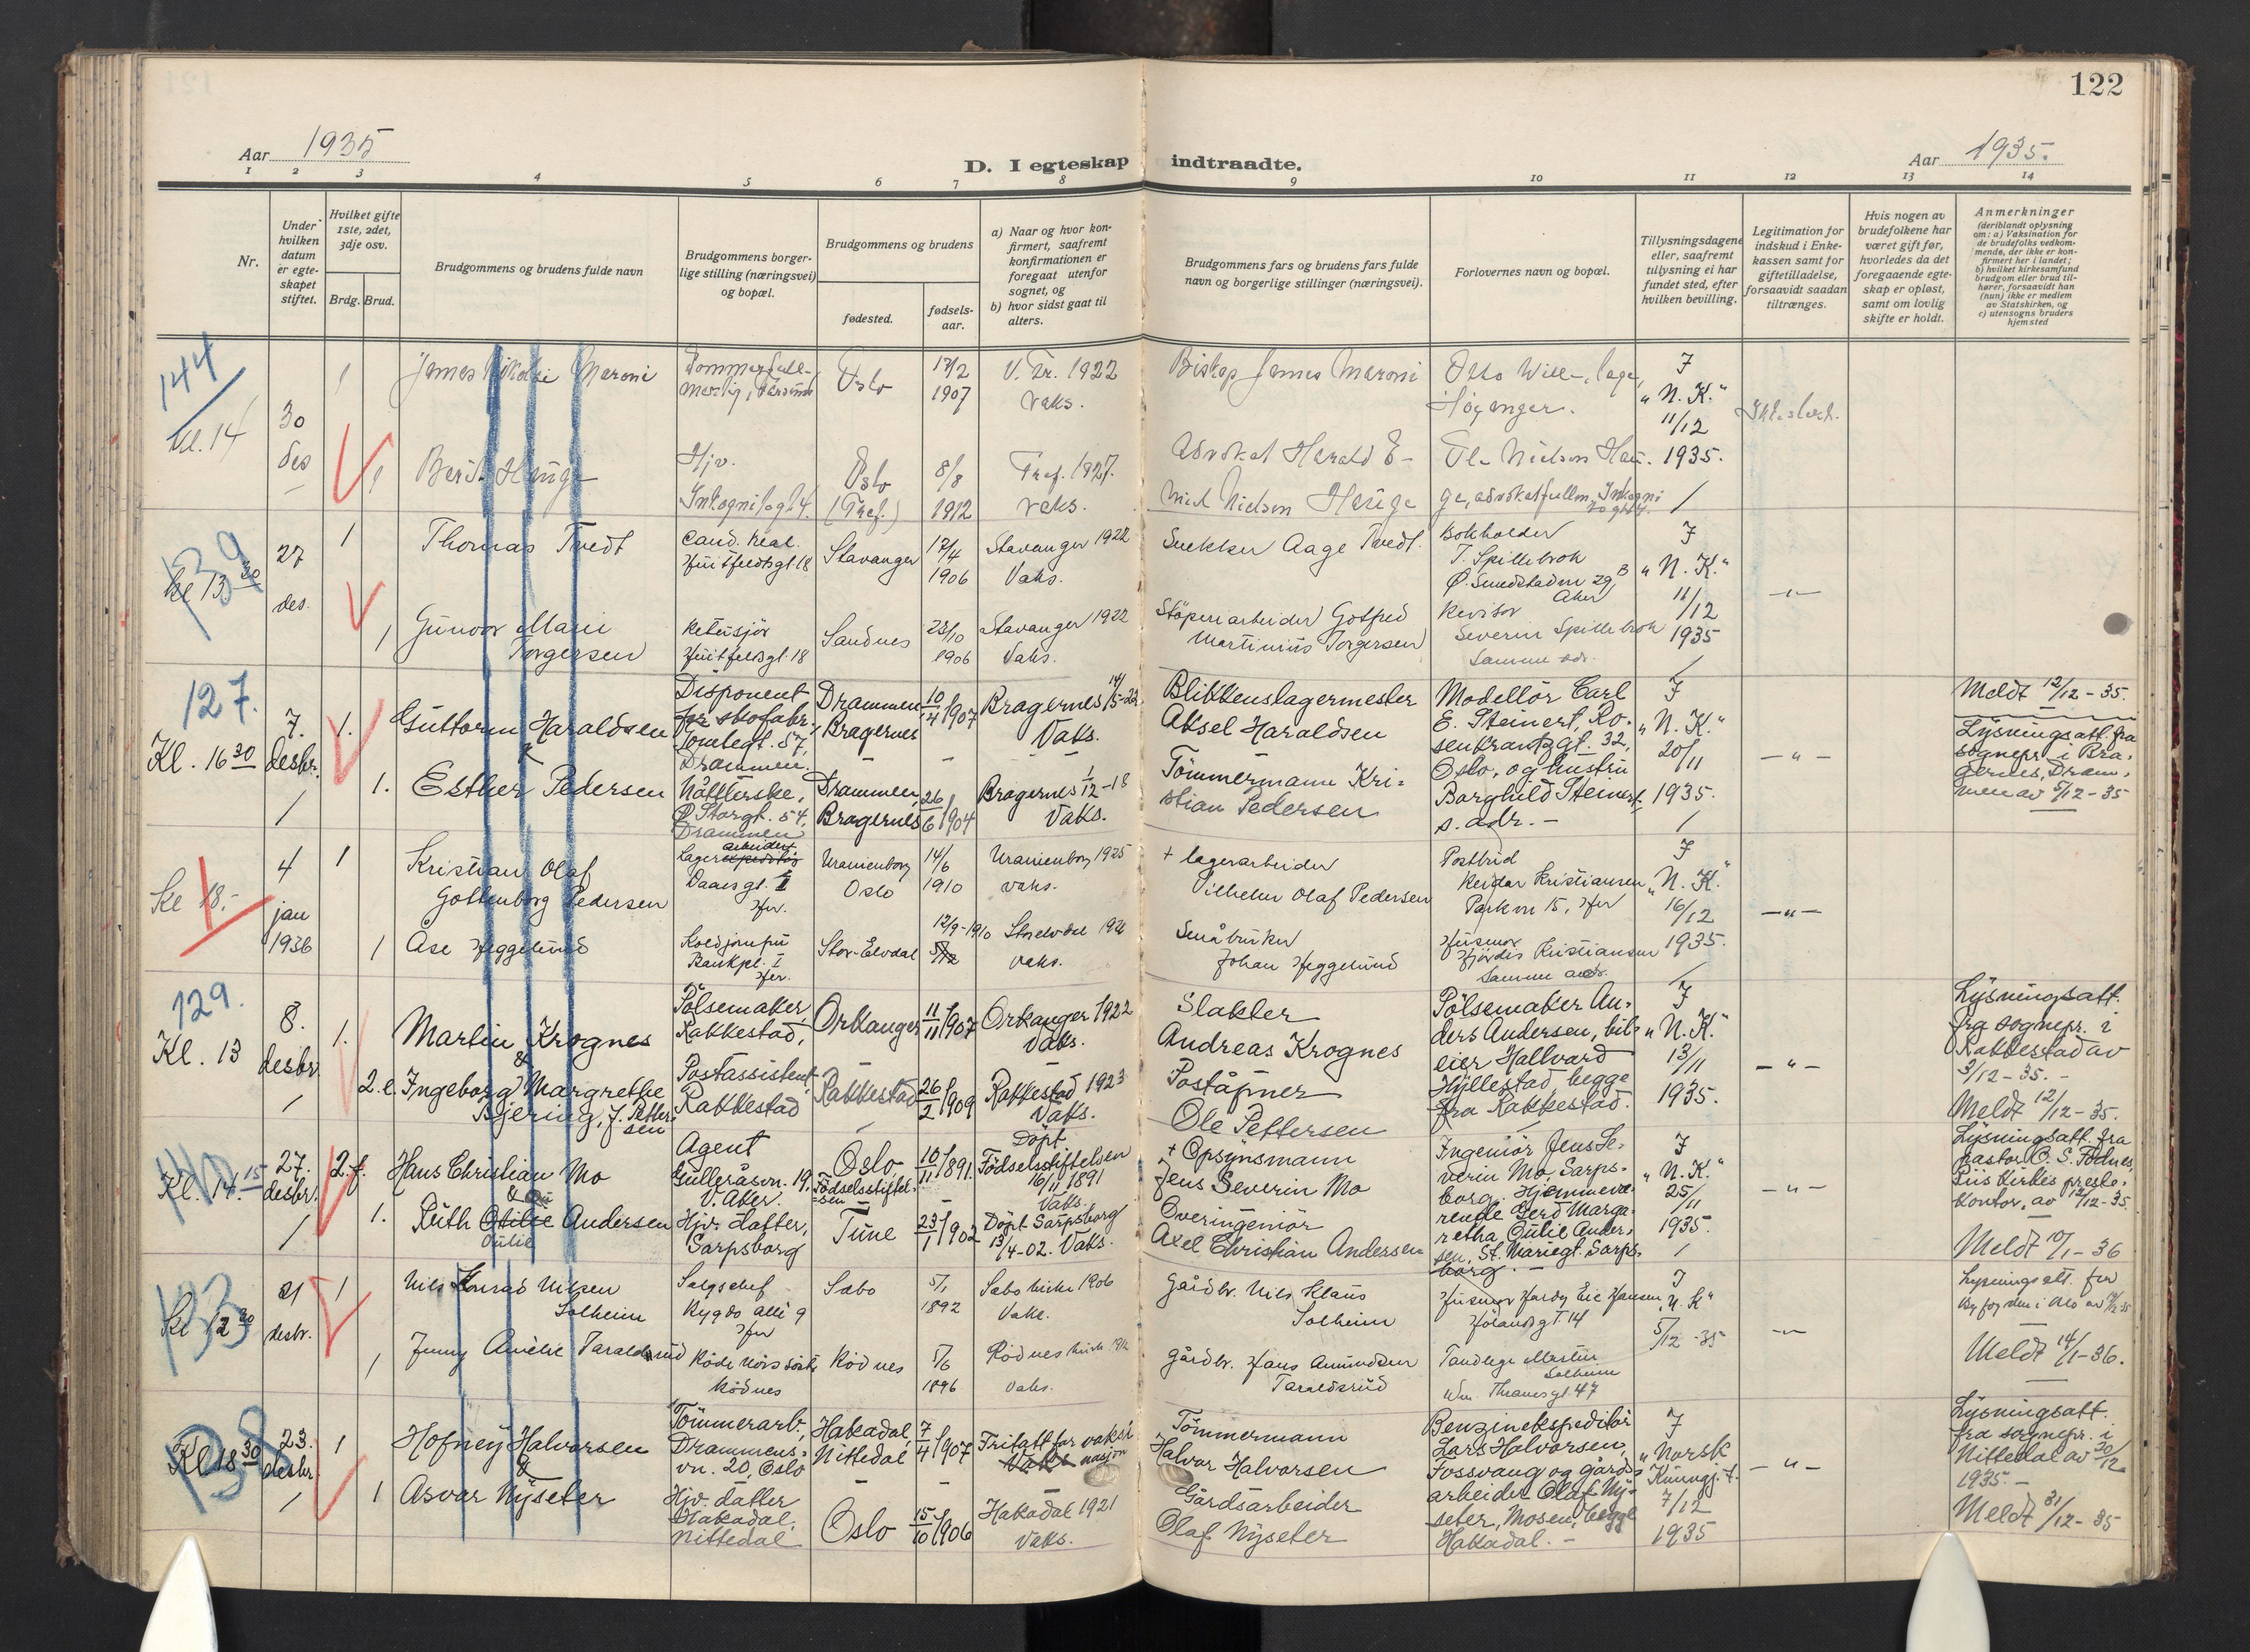 122
Aar 1935
D. I egteskap indtraadte.
Aar 1935.
1 2 3 4 5 6 7 8 9 10 11 12 13 14
Nr.
Under hvilken datum er egteskapet stiftet.
Hvilket gifte 1ste, 2det, 3dje osv.
Brdg. Brud.
Brudgommens og brudens fulde navn
Brudgommens borgerlige stilling (næringsvei) og bopæl.
Brudgommens og brudens
fødested.
fødselsaar.
a) Naar og hvor konfirmert, saafremt konfirmationen er foregaat utenfor sognet, og
b) hvor sidst gaat til alters.
Brudgommens fars og brudens fars fulde navn og borgerlige stillinger (næringsvei).
Forlovernes navn og bopæl.
Tillysningsdagene eller, saafremt tillysning ei har fundet sted, efter hvilken bevilling.
Legitimation for indskud i Enkekassen samt for giftetilladelse, forsaavidt saadan tiltrænges.
Hvis nogen av brudefolkene har været gift før, hvorledes da det foregaaende egteskap er opløst, samt om lovlig skifte er holdt.
Anmerkninger
(deriblandt oplysning om: a) Vaksination for de brudefolks vedkommende, der ikke er konfirmert her i landet;
b) hvilket kirkesamfund brudgom eller brud tilhører, forsaavidt han (hun) ikke er medlem av Statskirken, og
c) utensogns bruders hjemsted
144
Kl. 14
30 des
1
James Nikolai Maroni
Oslo
17/2 1907
V. Fr. 1922
Vaks.
Biskop James Maroni
Høyanger.
J
"N. K."
11/12
1935.
1
Berit Hauge
Hjv.
Inkognitogt 4.
Oslo
(Tref.)
8/8 1912
Tref. 1927.
Vaks.
Advokat Harald E-
mil Nielsen Hauge
139
kl 13 30
27 des.
1
Thomas Tvedt
Cand. real.
Huitfeldtsgt. 18
Stavanger
17/4 1906
Stavanger 1922
Vaks.
Snekker Aage Tvedt.
Bokholder
T. Spillebrok
J
"N. K."
11/12
1935
1
Gunvor Marie
Torgersen
Retusjör
Huitfeldsgt. 18
Sandnes
23/10 1906
Stavanger 1922
Vaks.
Støperiarbeider Gotfred
Martinius Torgersen
Revisor
Severin Spillebrok
Samme adr.
127.
Kl. 16 30
7. desbr.
1.
Guttorm Haraldsen
&
Disponent
for skofabr.,
Tomtegt. 57,
Drammen.
Drammen,
Bragernes
10/4 1907
Bragernes 14/5-22
Vaks.
Blikkenslagermester
Aksel Haraldsen
Modellör Carl
E. Steinert, Ro-
senkrantzgt. 32,
Oslo, og hustru
Borghild Steinert,
s. adr. -
J
"N. K."
20/11
1935.
- " -
Meldt 12/12 - 35.
Lysningsatt. fra
sognepr. i Bra-
gernes, Dram-
men av 5/12 - 35
1.
Esther Pedersen
Nåtlerske,
Ø Storgt. 54,
Drammen
Drammen,
Bragernes
26/6 1904
Bragernes 1/12 - 18
Vaks.
Tömmermann Kri-
stian Pedersen
kl 18.-
4 jan 1936
1
Kristian Olaf
Gottenborg Pedersen
arbeider
Daasgt. 1
Uranienborg
Oslo
14/6 1910
Uranienborg 1925
Vaks.
+ lagerarbeider
Vilhelm Olaf Pedersen
Postbud
Reidar Kristiansen
Parkvn 15, Her
J
"N. K."
16/12
1935.
- " -
1
Åse Heggelund
Koldjomfru
Bankpl. 1
Her.
Stor-Elvdal
12/9-1910
Storelvdal
Vaks.
Småbruker
Johan Heggelund
Husmor
Hjördis Kristiansen
Samme adr.
129.
Kl. 13
8. desbr.
1.
Martin Krognes
&
Pölsemaker,
Rakkestad,
Orkanger
11/11 1907
Orkanger 1922
Vaks.
Slakter
Andreas Krognes
Pölsemaker An-
ders Andersen, bil-
eier Hallvard
Hyllestad, begge
fra Rakkestad.
J
"N. K."
13/11
1935.
- " -
Lysningsatt.
fra sognepr. i
Rakkestad av
3/12 - 35. -
Meldt 12/12 - 35.
2. e.
Ingeborg Margrethe
Bjering, f. Petter-
sen
Postassistent
Rakkestad
Rakkestad
26/2 1909
Rakkestad 1923
Vaks.
Poståpner
Ole Pettersen
140
Kl. 14 15
27. desbr.
2. f.
Hans Christian Mo
&
Agent
Gulleråsvn. 19,
V. Aker.
Oslo
Födselsstiftel-
sen
10/11 1891.
Döpt
Födselsstiftelsen
16/11 1891
Vaks.
+ Opsynsmann
Jens Severin Mo
Ingeniör Jens Se-
verin Mo, Sarps-
borg. Hjemmevæ-
rende Gerd Marga-
retha Oulie Ander-
sen, St. Mariegt. Sarps-
borg. -
J
"N. K."
25/11
1935.
- " -
Lysningsatt. fra
pastor O. S. Födnes,
Riis Kirkes preste-
kontor, av 12/12 - 35.
Meldt 10/1 - 36
1.
Ruth Otilie Andersen
Oulie
Hjv. datter,
Sarpsborg
Tune
23/1 1902
Döpt Sarpsborg
13/4 - 02. Vaks.
Overingeniör
Axel Christian Andersen
133
kl 12 30
21 desbr.
1
Nils Konrad Nilsen
Solheim
Salgschef
Bygdö allé 9
Her
Sabo
5/1 1892
Sabo kirke 1906
Vaks.
Gårdbr. Nils Klaus
Solheim
Jölandsgt 14
J
"N. K"
5/12 - 35
Meldt 14/1 - 36.
1
Jenny Amelie Taraldsrud
Rödnes
Rödnes
5/6 1896
Rödnes kirke
Vaks.
Gårdbr. Hans Amundsen
Taraldsrud
Tandlege Martin
Solheim
Wm. Thranesgt. 47
138
Kl 18 30
23. desbr.
1
Hofney Halvorsen
&
Tömmerarb.,
Drammens-
vn. 20, Oslo
Hakadal,
Nittedal
7/4 1907
Fritatt for vaksi-
nasjon
Tömmermann
Halvor Halvorsen
Benzinekspeditör
Lars Halvorsen,
Fossvang og gårds-
arbeider Olaf Ny-
seter, Mosen, begge
Hakadal. -
J
"Norsk
Kunngj.t.
7/12
1935
- " -
Lysningsatt.
fra sognepr. i
Nittedal av 20/12
1935. -
Meldt 31/12 - 35
1
Asvor Nyseter
Hjv. datter
Hakadal,
Nittedal
Oslo
15/10 1906
Hakadal 1921
Vaks.
Gårdsarbeider
Olaf Nyseter